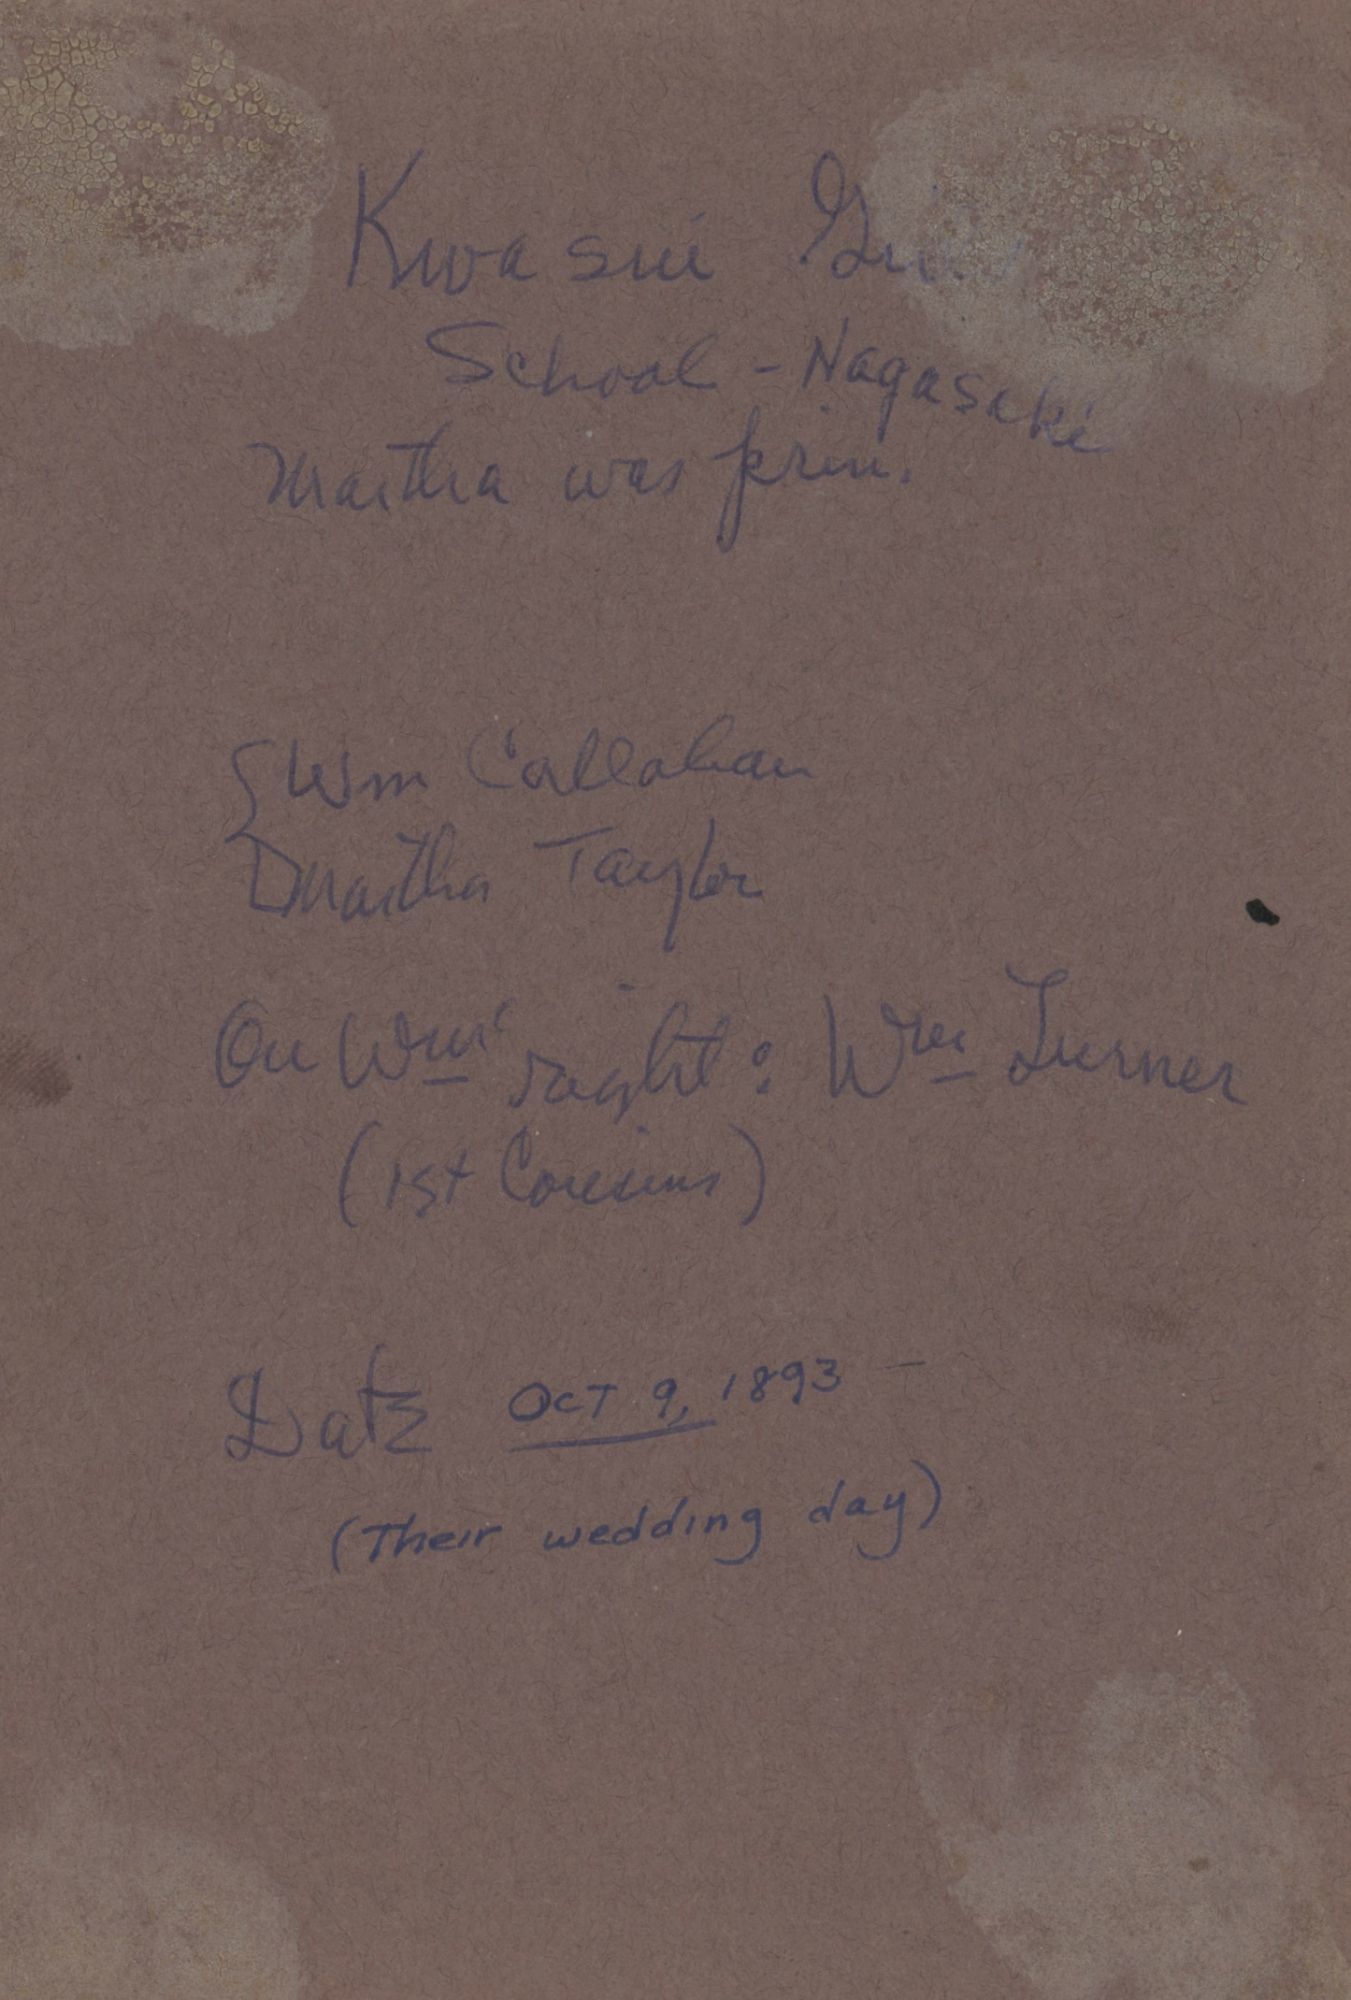 Kwassui
School - Nagasaki
Martha was prin.
Wm Callahan
Martha Taylor
On Wms' right: Wm Turner
(1st Cousins)
Date OCT 9, 1893 —
(Their wedding day)